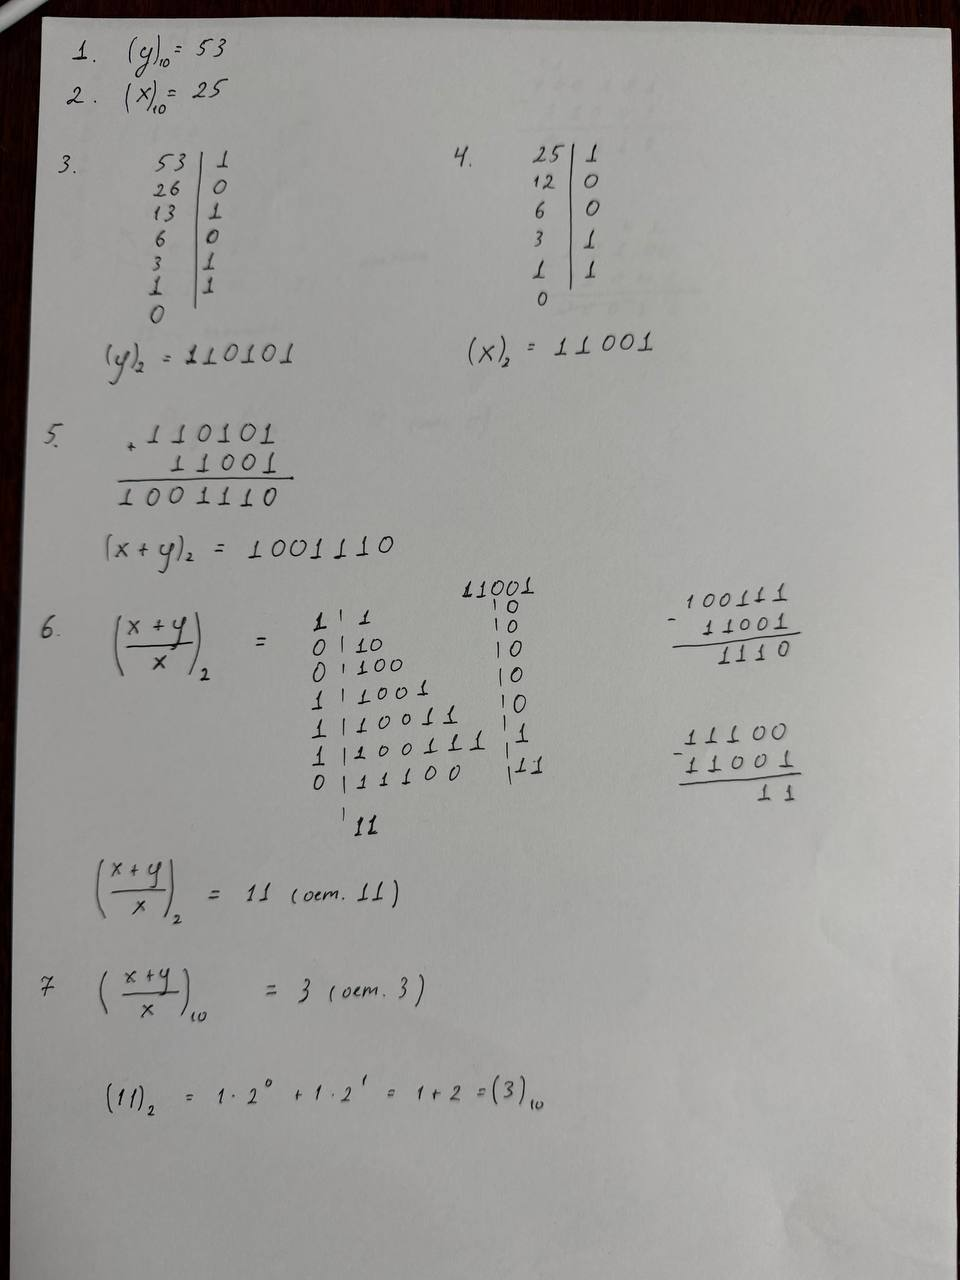 1. (y)₁₀ = 53
2. (x)₁₀ = 25
3.
53 | 1
26 | 0
13 | 1
6 | 0
3 | 1
1 | 1
0
(y)₂ = 110101
4.
25 | 1
12 | 0
6 | 0
3 | 1
1 | 1
0
(x)₂ = 11001
5.
+ 110101
11001
1001110
(x + y)₂ = 1001110
6. ((x + y)/x)₂ =
11001
1 | 1 | 0
0 | 10 | 0
0 | 100 | 0
1 | 1001 | 0
1 | 10011 | 0
1 | 100111 | 1
0 | 11100 | 11
11
100111
- 11001
1110
11100
- 11001
11
((x + y)/x)₂ = 11 (ост. 11)
7 ((x + y)/x)₁₀ = 3 (ост. 3)
(11)₂ = 1 · 2⁰ + 1 · 2¹ = 1 + 2 = (3)₁₀